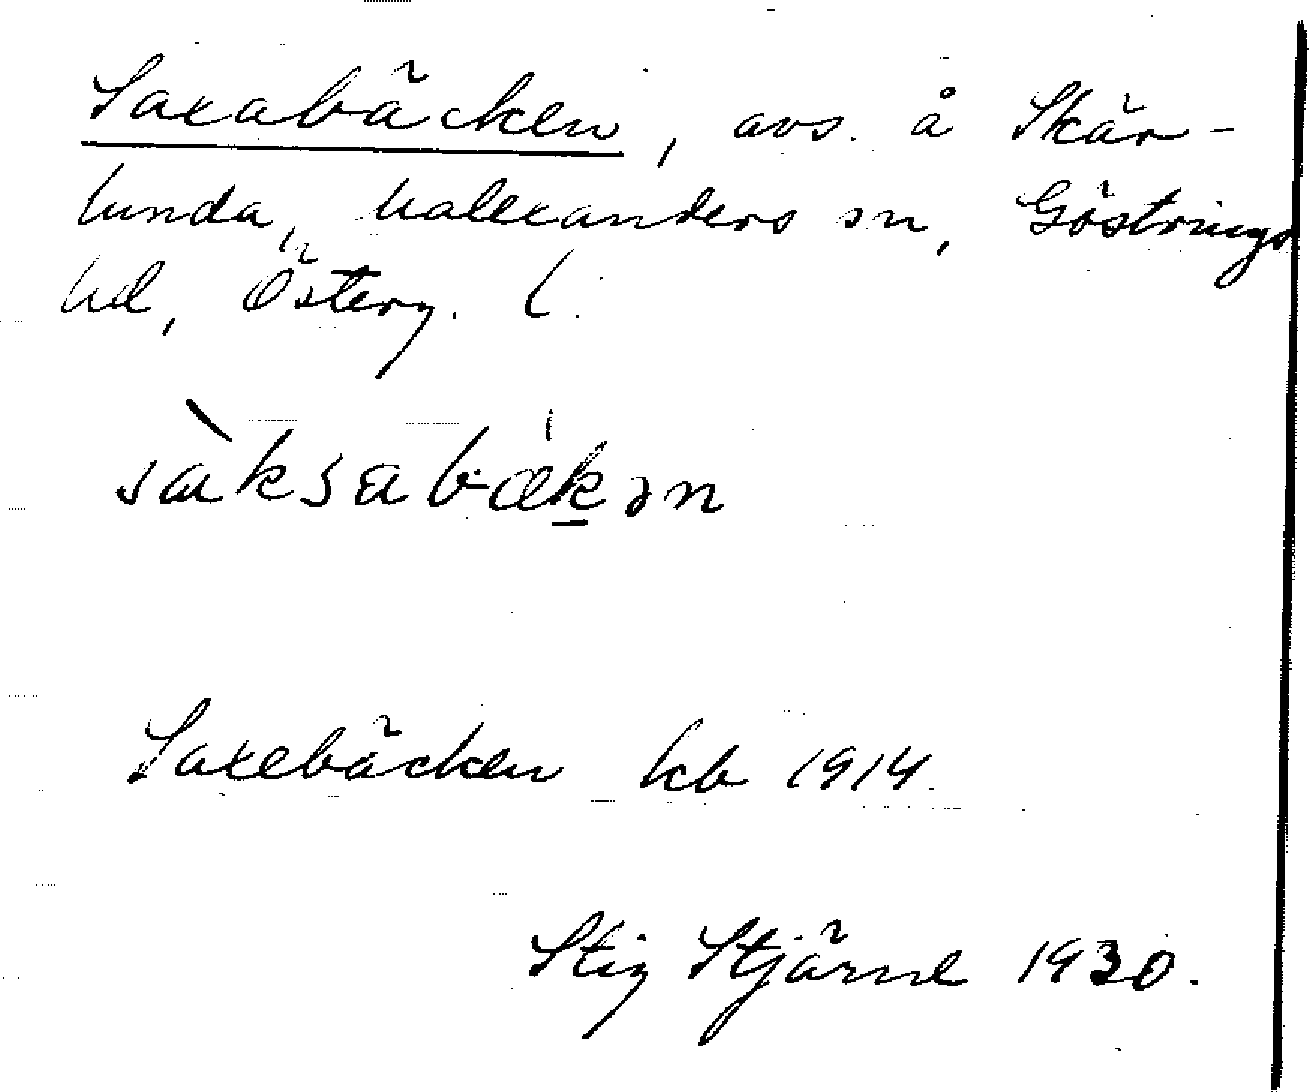 Saxabäcken, avs. å Skär-
lunda, Kalexanders sn, Göstrings
hd, Österg. l.
sàksabækən
Saxebäcken kb 1914.
Stig Stjärne 1930.